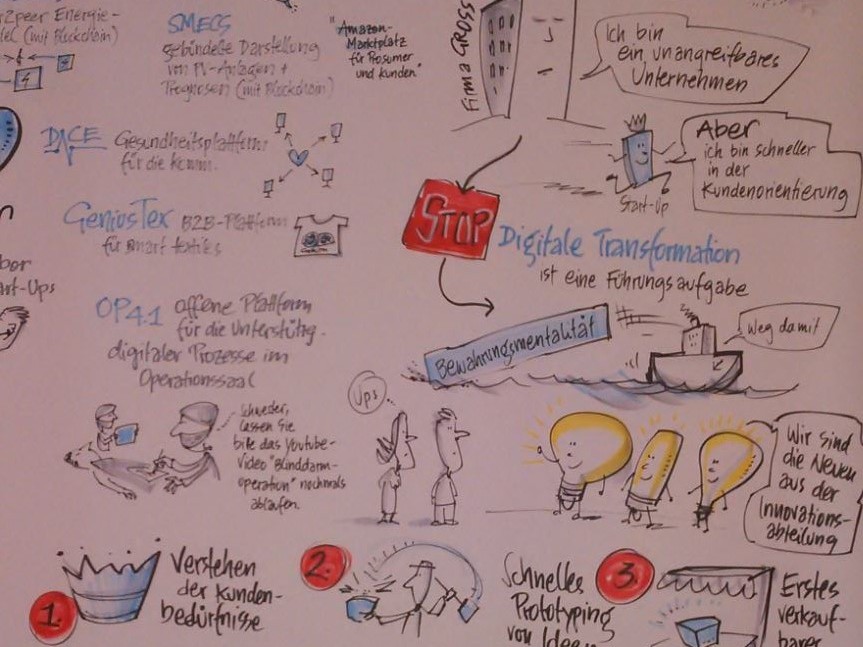 SMECS
gebündelte Darstellung
von PV-Anlagen +
Prognosen (mit Blockchain)
"Amazon-
Marktplatz
für Prosumer
und Kunden"
Firma GROSS
Ich bin
ein unangreifbares
Unternehmen
Aber
ich bin schneller
in der
Kundenorientierung
Start-Up
DACE Gesundheitsplattform
für die Komm.
GeniusTex B2B-Plattform
für smart textiles
STOP
Digitale Transformation
ist eine Führungsaufgabe
OP4.1 offene Plattform
für die Unterstützg.
digitaler Prozesse im
Operationssaal
Bewahrungsmentalität
Weg damit
Schwester,
lassen Sie
bitte das Youtube-
Video "Blinddarm-
operation" nochmals
ablaufen.
Ups
Wir sind
die Neuen
aus der
Innovations-
abteilung
1. Verstehen
der Kunden-
bedürfnisse
2. Schnelles
Prototyping
von Ideen
3. Erstes
verkauf-
barer